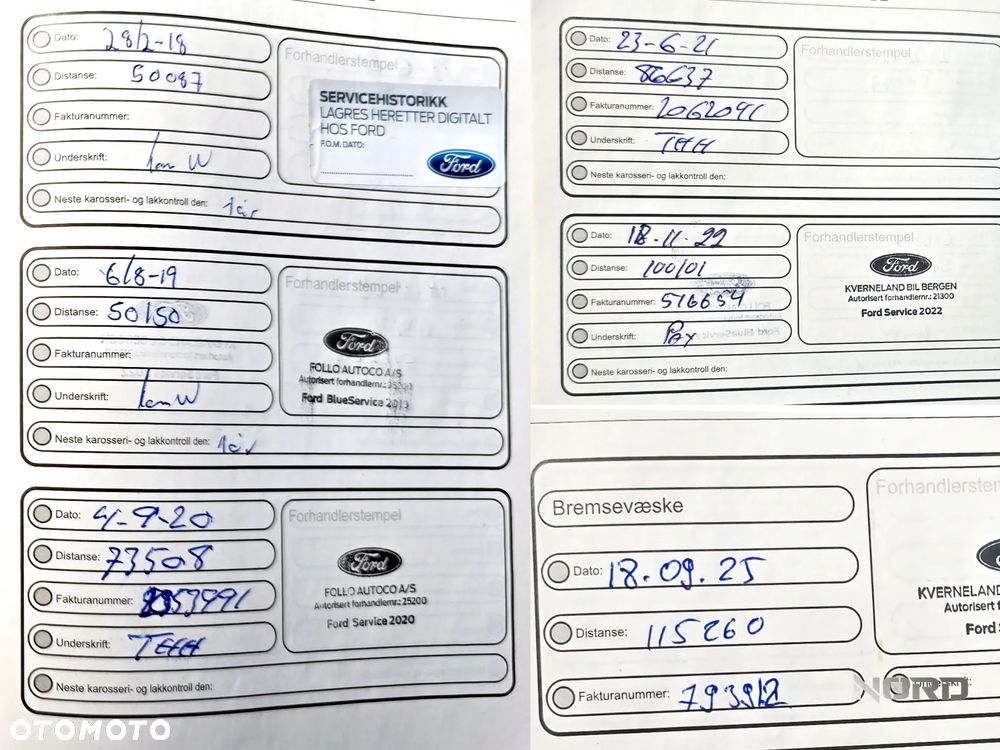 Dato: 28/2-18
Distanse: 50087
Fakturanummer:
Underskrift:
Neste karosseri- og lakkontroll den: 1 år
Forhandlerstempel
SERVICEHISTORIKK
LAGRES HERETTER DIGITALT
HOS FORD
F.O.M. DATO:
Ford
Dato: 6/8-19
Distanse: 50150
Fakturanummer:
Underskrift:
Neste karosseri- og lakkontroll den: 1 år
Forhandlerstempel
Ford
FOLLO AUTOCO A/S
Autorisert forhandlernr.: 25200
Ford BlueService 2013
Dato: 4-9-20
Distanse: 73508
Fakturanummer: 2053991
Underskrift:
Neste karosseri- og lakkontroll den:
Forhandlerstempel
Ford
FOLLO AUTOCO A/S
Autorisert forhandlernr.: 25200
Ford Service 2020
Dato: 23-6-21
Distanse: 86637
Fakturanummer: 2062091
Underskrift:
Neste karosseri- og lakkontroll den:
Forhandlerstempel
Dato: 18.11.22
Distanse: 100101
Fakturanummer: 516654
Underskrift:
Neste karosseri- og lakkontroll den:
Forhandlerstempel
Ford
KVERNELAND BIL BERGEN
Autorisert forhandlernr.: 21300
Ford Service 2022
Bremsevæske
Dato: 18.09.25
Distanse: 115260
Fakturanummer: 793912
Forhandlerstem
KVERNELAND
Autorisert
Ford
NORD
OTOMOTO